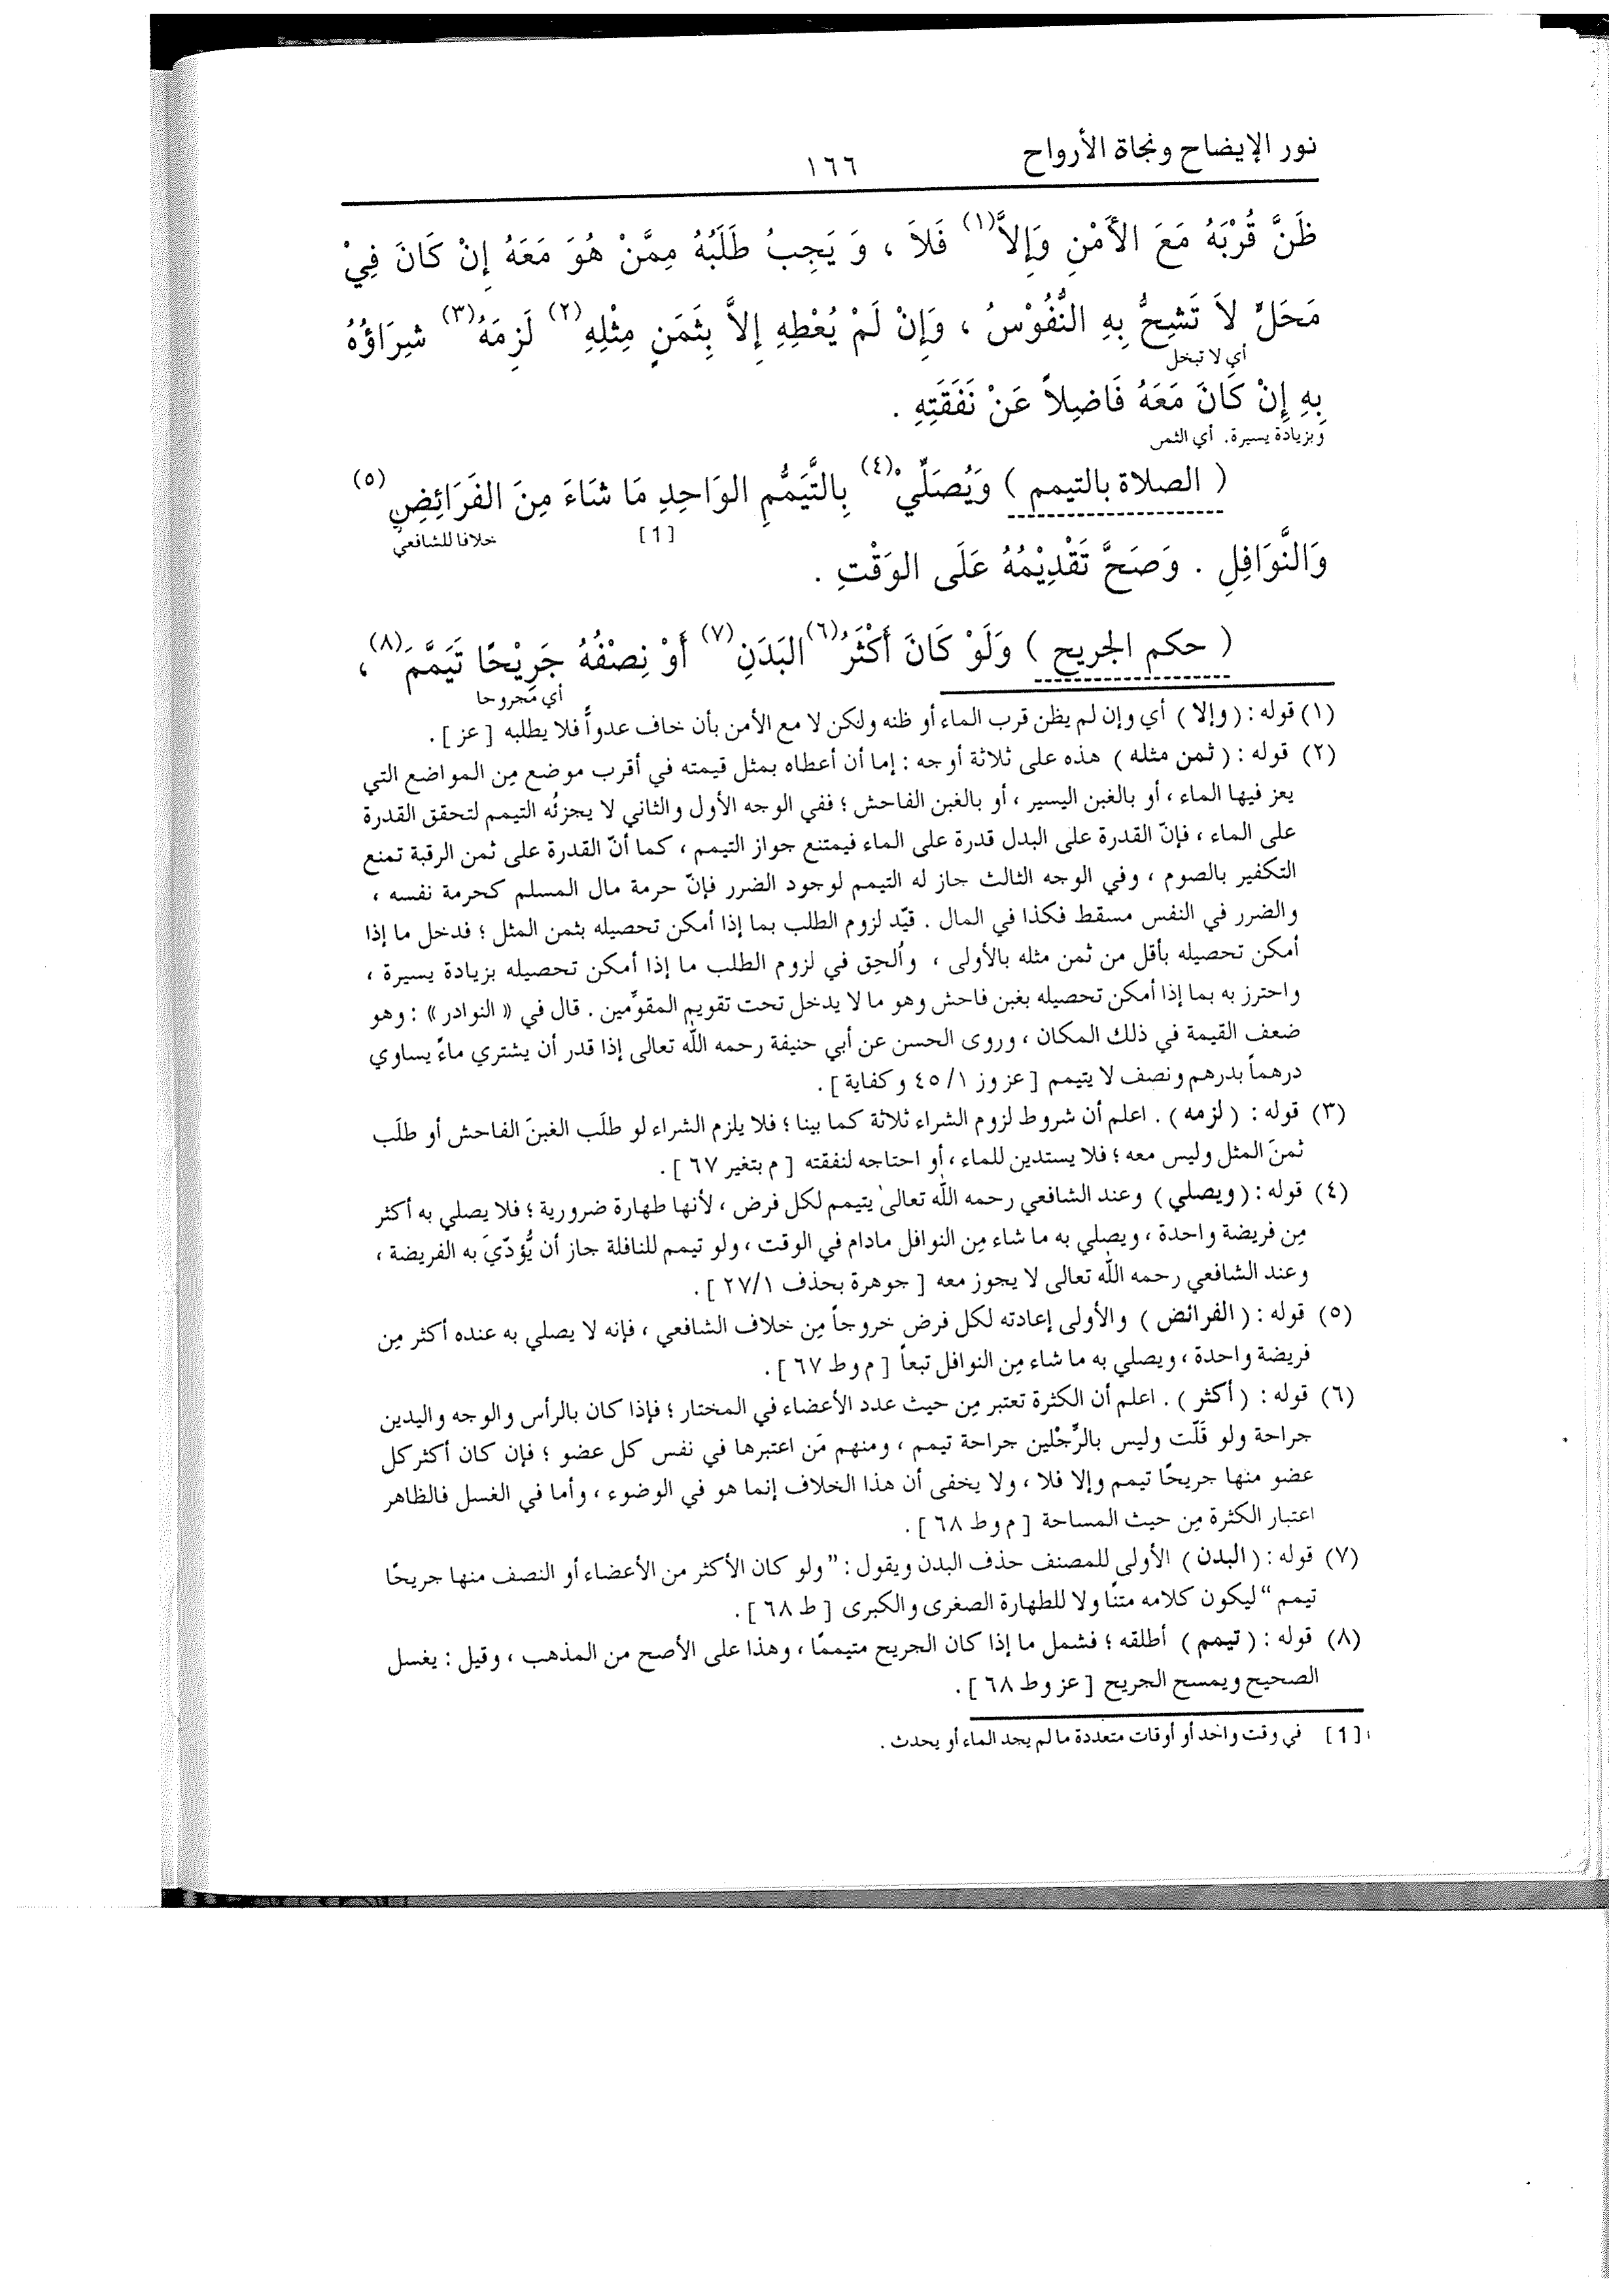 نور الإيضاح ونجاة الأرواح ١٦٦
ظَنَّ قُرْبَهُ مَعَ الأَمْنِ وَإِلاَّ(١) فَلاَ ، وَ يَجِبُ طَلَبُهُ مِمَّنْ هُوَ مَعَهُ إِنْ كَانَ فِيْ
مَحَلٍّ لاَ تَشِحُّ بِهِ النُّفُوْسُ ، وَإِنْ لَمْ يُعْطِهِ إِلاَّ بِثَمَنِ مِثْلِهِ(٢) لَزِمَهُ(٣) شِرَاؤُهُ
أي لا تبخل
بِهِ إِنْ كَانَ مَعَهُ فَاضِلاً عَنْ نَفَقَتِهِ .
وبزيادة يسيرة. أي الثمن
( الصلاة بالتيمم ) وَيُصَلِّيْ(٤) بِالتَّيَمُّمِ الوَاحِدِ مَا شَاءَ مِنَ الفَرَائِضِ(٥)
[1] خلافا للشافعي
وَالنَّوَافِلِ . وَصَحَّ تَقْدِيْمُهُ عَلَى الوَقْتِ .
( حكم الجريح ) وَلَوْ كَانَ أَكْثَرُ(٦) البَدَنِ(٧) أَوْ نِصْفُهُ جَرِيْحًا تَيَمَّمَ(٨) ،
أي مجروحا
(١) قوله : ( وإلا ) أي وإن لم يظن قرب الماء أو ظنه ولكن لا مع الأمن بأن خاف عدواً فلا يطلبه [ عز ] .
(٢) قوله : ( ثمن مثله ) هذه على ثلاثة أوجه : إما أن أعطاه بمثل قيمته في أقرب موضع مِن المواضع التي
يعز فيها الماء ، أو بالغبن اليسير ، أو بالغبن الفاحش ؛ ففي الوجه الأول والثاني لا يجزئُه التيمم لتحقق القدرة
على الماء ، فإنّ القدرة على البدل قدرة على الماء فيمتنع جواز التيمم ، كما أنّ القدرة على ثمن الرقبة تمنع
التكفير بالصوم ، وفي الوجه الثالث جاز له التيمم لوجود الضرر فإنّ حرمة مال المسلم كحرمة نفسه ،
والضرر في النفس مسقط فكذا في المال . قيّد لزوم الطلب بما إذا أمكن تحصيله بثمن المثل ؛ فدخل ما إذا
أمكن تحصيله بأقل من ثمن مثله بالأولى ، وأُلحِق في لزوم الطلب ما إذا أمكن تحصيله بزيادة يسيرة ،
واحترز به بما إذا أمكن تحصيله بغبن فاحش وهو ما لا يدخل تحت تقويم المقوِّمين . قال في « النوادر» : وهو
ضعف القيمة في ذلك المكان ، وروى الحسن عن أبي حنيفة رحمه الله تعالى إذا قدر أن يشتري ماءً يساوي
درهماً بدرهم ونصف لا يتيمم [ عز وز ١/ ٤٥ وكفاية ] .
(٣) قوله : ( لزمه ) . اعلم أن شروط لزوم الشراء ثلاثة كما بينا ؛ فلا يلزم الشراء لو طلَب الغبنَ الفاحش أو طلَب
ثمنَ المثل وليس معه ؛ فلا يستدين للماء ، أو احتاجه لنفقته [ م بتغير ٦٧ ] .
(٤) قوله : ( ويصلي ) وعند الشافعي رحمه الله تعالىٰ يتيمم لكل فرض ، لأنها طهارة ضرورية ؛ فلا يصلي به أكثر
مِن فريضة واحدة ، ويصلي به ما شاء مِن النوافل مادام في الوقت ، ولو تيمم للنافلة جاز أن يُّؤدّيَ به الفريضة ،
وعند الشافعي رحمه الله تعالى لا يجوز معه [ جوهرة بحذف ٢٧/١ ] .
(٥) قوله : ( الفرائض ) والأولى إعادته لكل فرض خروجاً مِن خلاف الشافعي ، فإنه لا يصلي به عنده أكثر مِن
فريضة واحدة ، ويصلي به ما شاء مِن النوافل تبعاً [ م وط ٦٧ ] .
(٦) قوله : ( أكثر ) . اعلم أن الكثرة تعتبر مِن حيث عدد الأعضاء في المختار ؛ فإذا كان بالرأس والوجه واليدين
جراحة ولو قَلّت وليس بالرِّجْلين جراحة تيمم ، ومنهم مَن اعتبرها في نفس كل عضو ؛ فإن كان أكثر كل
عضو منها جريحًا تيمم وإلا فلا ، ولا يخفى أن هذا الخلاف إنما هو في الوضوء ، وأما في الغسل فالظاهر
اعتبار الكثرة مِن حيث المساحة [ م وط ٦٨ ] .
(٧) قوله : ( البدن ) الأولى للمصنف حذف البدن ويقول : ”ولو كان الأكثر من الأعضاء أو النصف منها جريحًا
تيمم “ ليكون كلامه متنًا ولا للطهارة الصغرى والكبرى [ ط ٦٨ ] .
(٨) قوله : ( تيمم ) أطلقه ؛ فشمل ما إذا كان الجريح متيممًا ، وهذا على الأصح من المذهب ، وقيل : يغسل
الصحيح ويمسح الجريح [ عز وط ٦٨ ] .
[1] في وقت واحد أو أوقات متعددة ما لم يجد الماء أو يحدث .